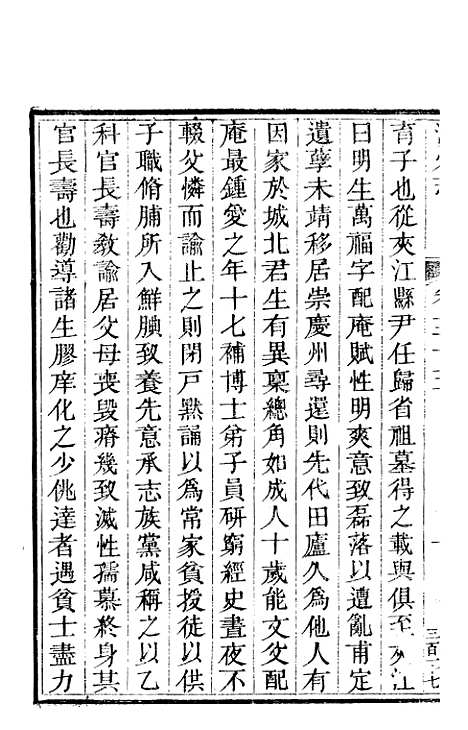 育子也從夾江縣尹任歸省祖墓得之載與俱至夾江
曰明生萬福字配庵賦性明爽意致磊落以遭亂甫定
遺孽未靖移居崇慶州尋還則先代田廬久為他人有
因家於城北君生有異稟總角如成人十歲能文父配
庵最鍾愛之年十七補博士弟子員研窮經史晝夜不
輟父憐而諭止之則閉戶默誦以為常家貧授徒以供
子職脩脯所入鮮腆致養先意承志族黨咸稱之以乙
科官長壽教諭居父母喪毀瘠幾致滅性孺慕終身其
官長壽也勸導諸生膠庠化之少佻達者遇貧士盡力